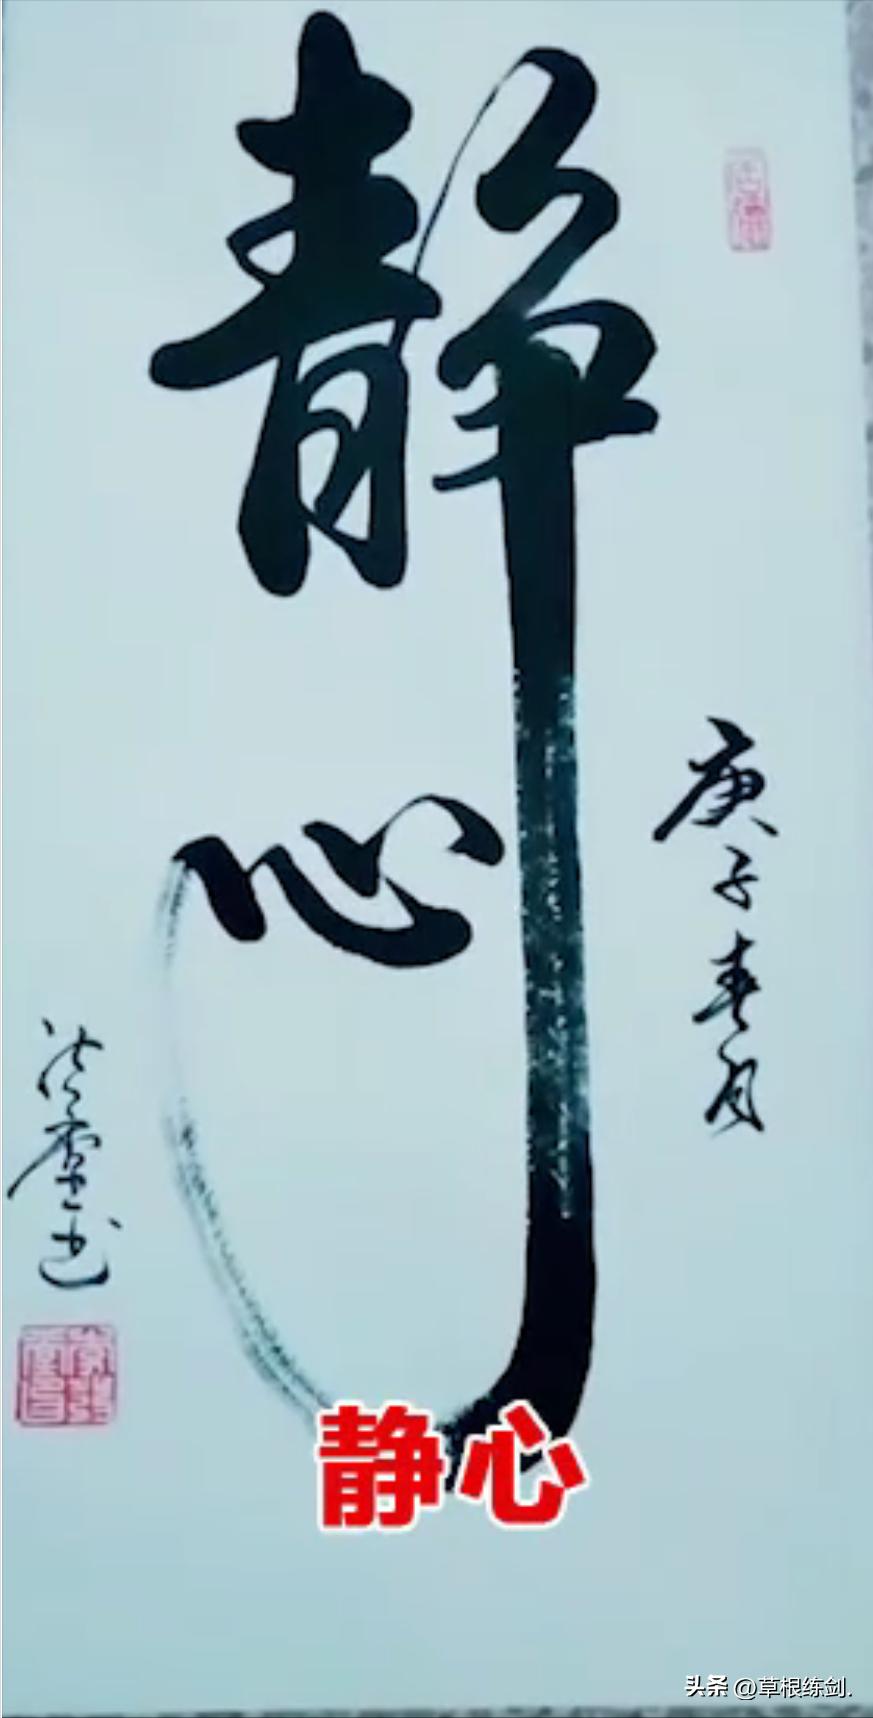 静心
庚子春月
书
静心
头条 @草根练剑.